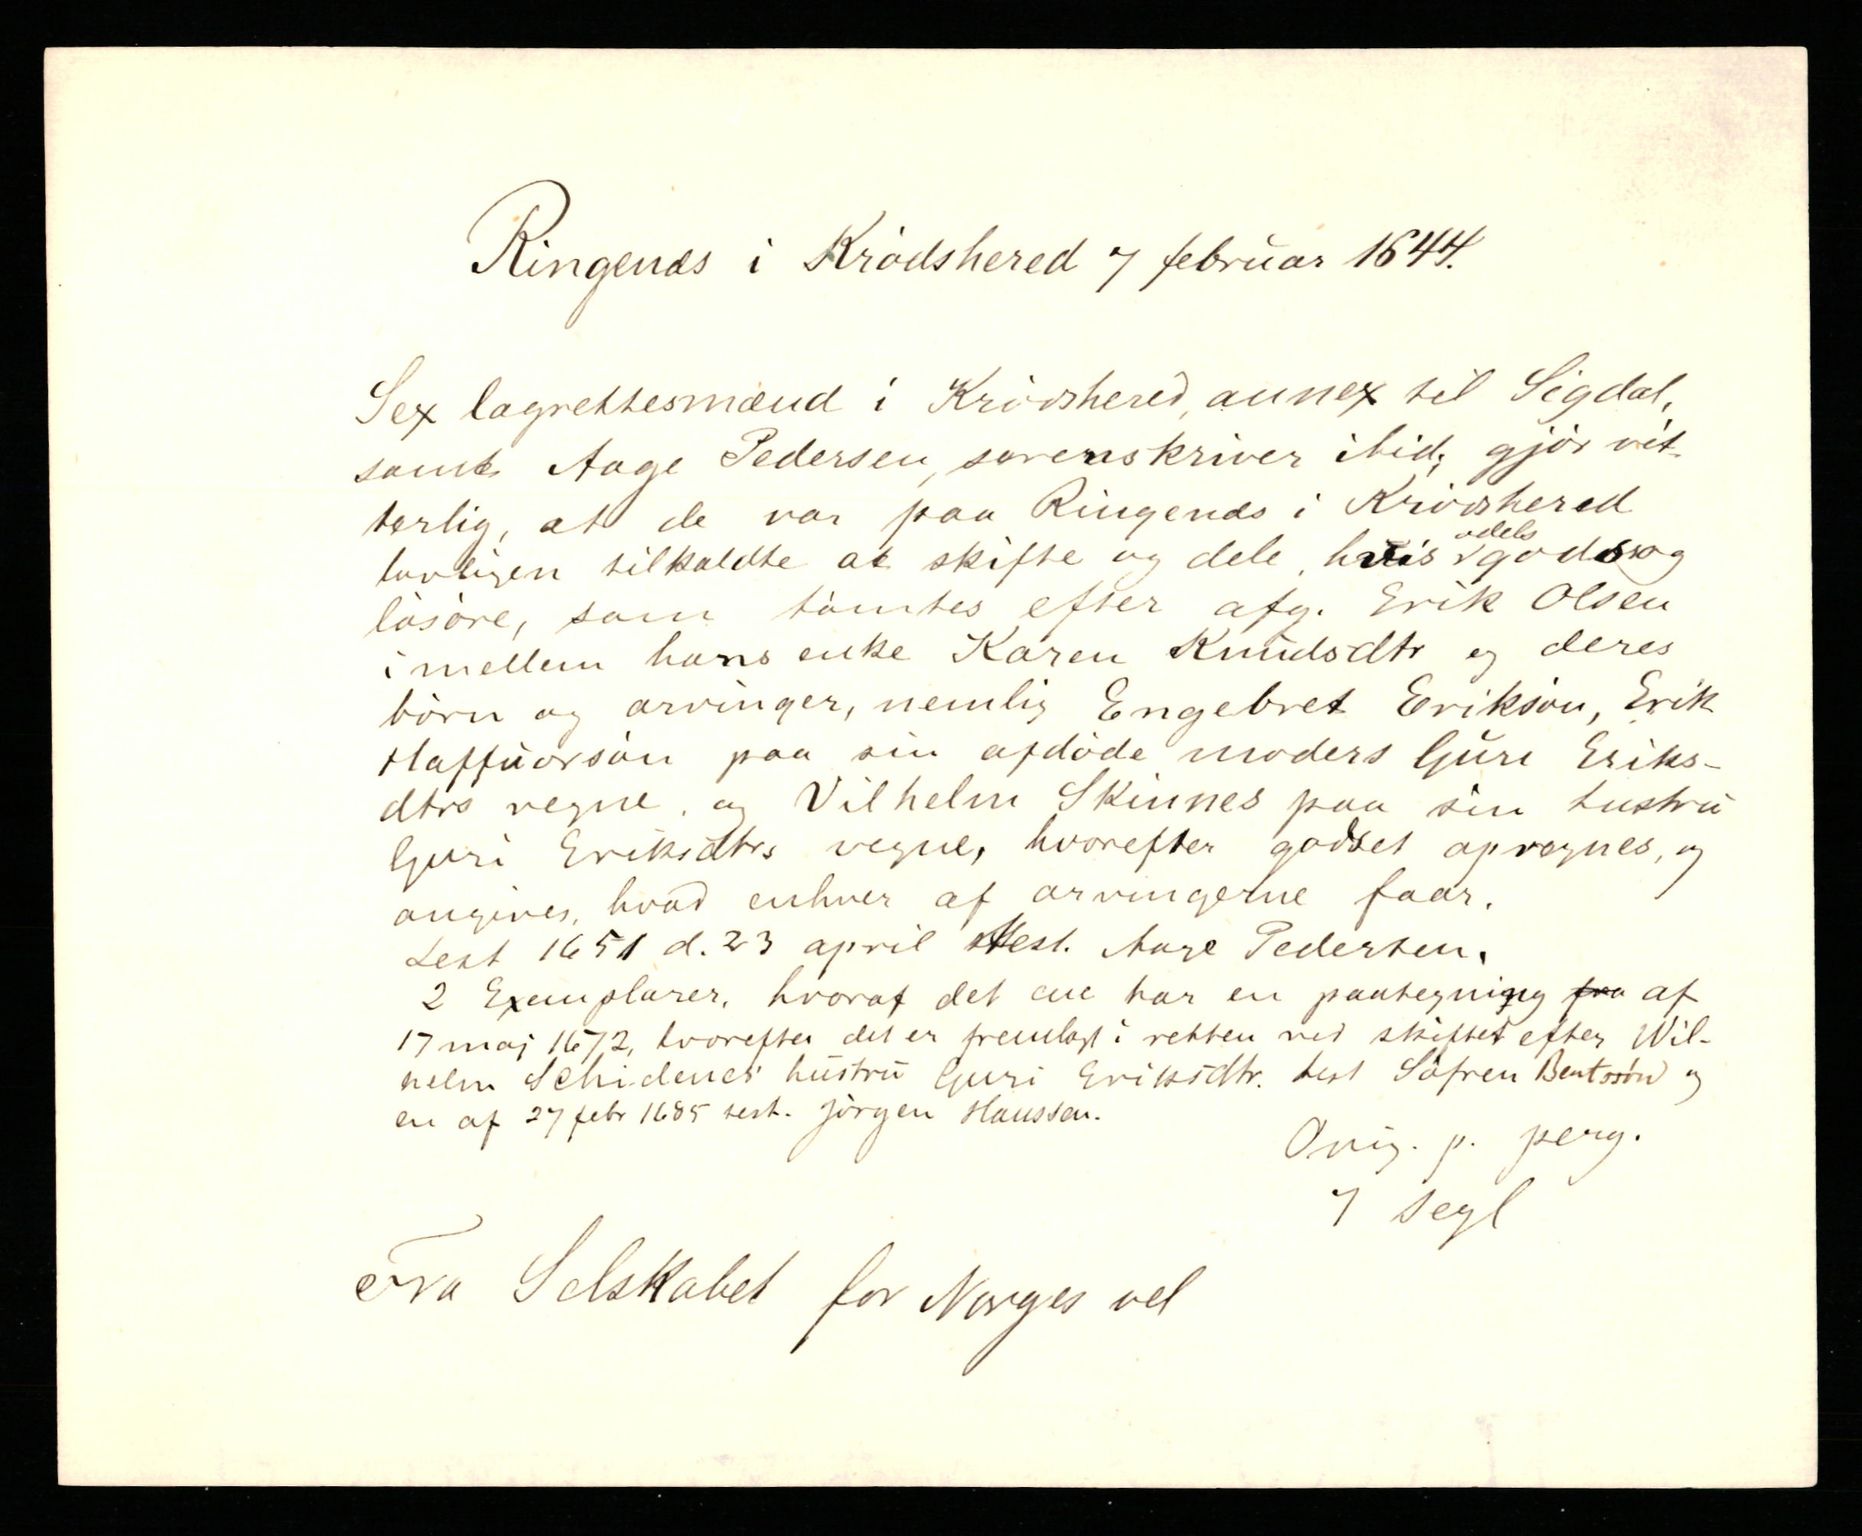 Ringenæs i Krödshered 7 februar 1644.
Sex lagrettesmænd i Krödshered, annex til Sigdal,
samt Aage Pedersen, sorenskriver ibid; gjör vit-
terlig, at de var paa Ringenæs i Krödshered
lovligen tilkaldte at skifte og dele, hvis odels gods og
lösöre, som tömtes efter afg. Erik Olsen
imellem hans enke Karen Knudsdtr og deres
börn og arvinger, nemlig Engebret Eriksön, Erik
Haffuorsön paa sin afdöde moders Guri Eriks-
dtrs vegne, og Vilhelm Skinnes paa sin hustru
Guri Eriksdtrs vegne, hvorefter godset opregnes, og
angives, hvad enhver af arvingerne faar.
Lest 1651 d. 23 april test. Aage Pedersen.
2 Exemplarer, hvoraf det ene har en paategning fra af
17 maj 1672, hvorefter det er fremlagt i retten ved skiftet efter Wil-
helm Schidenes hustru Guri Eriksdtr. test Söfren Bentssön og
en af 27 febr 1685 test. Jörgen Hanssen.
Orig. p. perg.
7 segl
Fra Selskabet for Norges vel